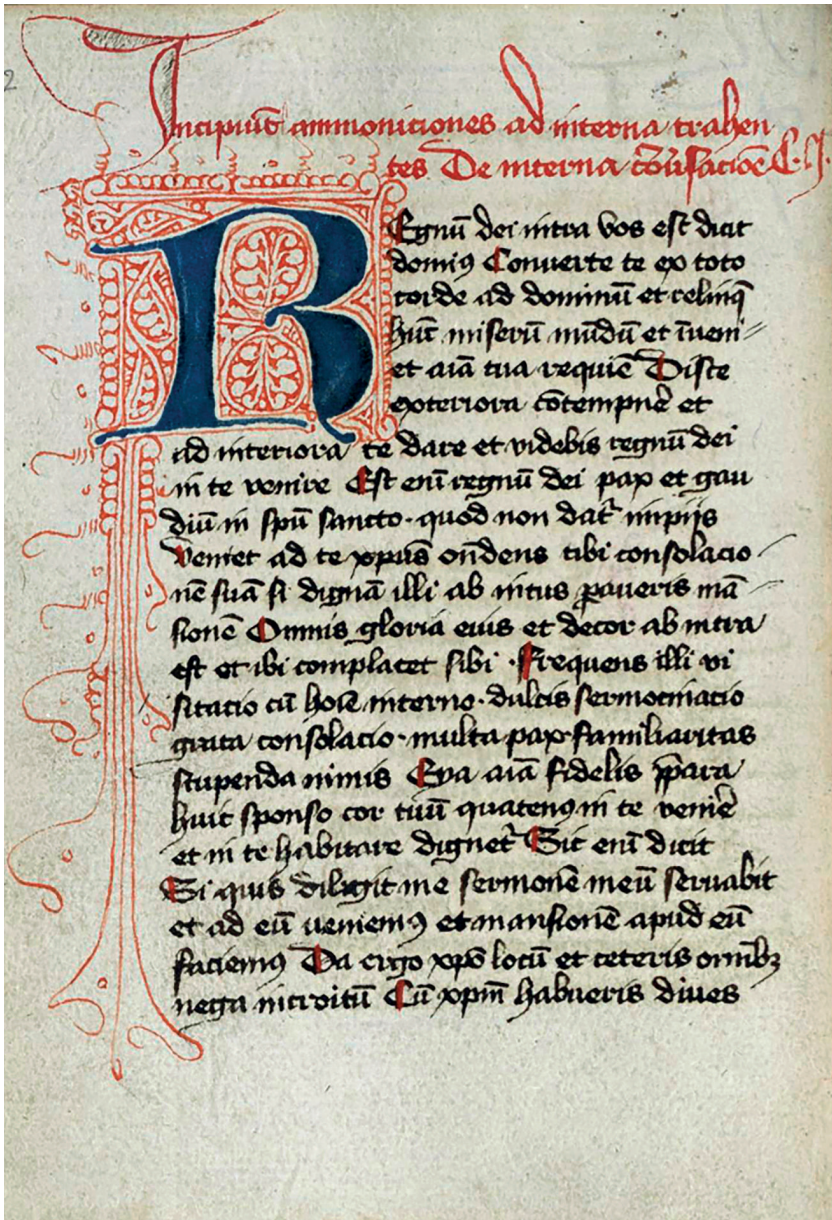 Incipiūt ammoniciones ad interna trahen
tes De interna cōūsacioē C. j.
REgnū dei intra vos est dicit
domiꝰ Converte te ex toto
corde ad dominū et relinq̄
hūc miserū mūdū et īveni
et aīā tua requiē Disce
exteriora cōtempnēe et
ad interiora te dare et videbis regnū dei
in te venire Est enī regnū dei pax et gau
diū in spū sancto · quod non dat᷑ impijs
Veniet ad te xpūs oñdens tibi consolacio
nē suā si dignā illi ab intus ꝑaveris mā
sionē Omnis gloria eius et decor ab intra
est et ibi complacet sibi · Frequens illi vi
sitacio cū hoīe interno · dulcis sermocinacio
grata consolacio · multa pax · familiaritas
stupenda nimis Eya aīā fidelis p̄para
huic sponso cor tuū quatenꝰ in te veniēe
et in te habitare dignet᷑ Sic enī dicit
Si quis diligit me sermonē meū servabit
et ad eū veniemꝰ et mansionē apud eū
faciemꝰ Da ergo xp̄o locū et ceteris omībꝫ
nega introitū Cū xp̄m habueris dives